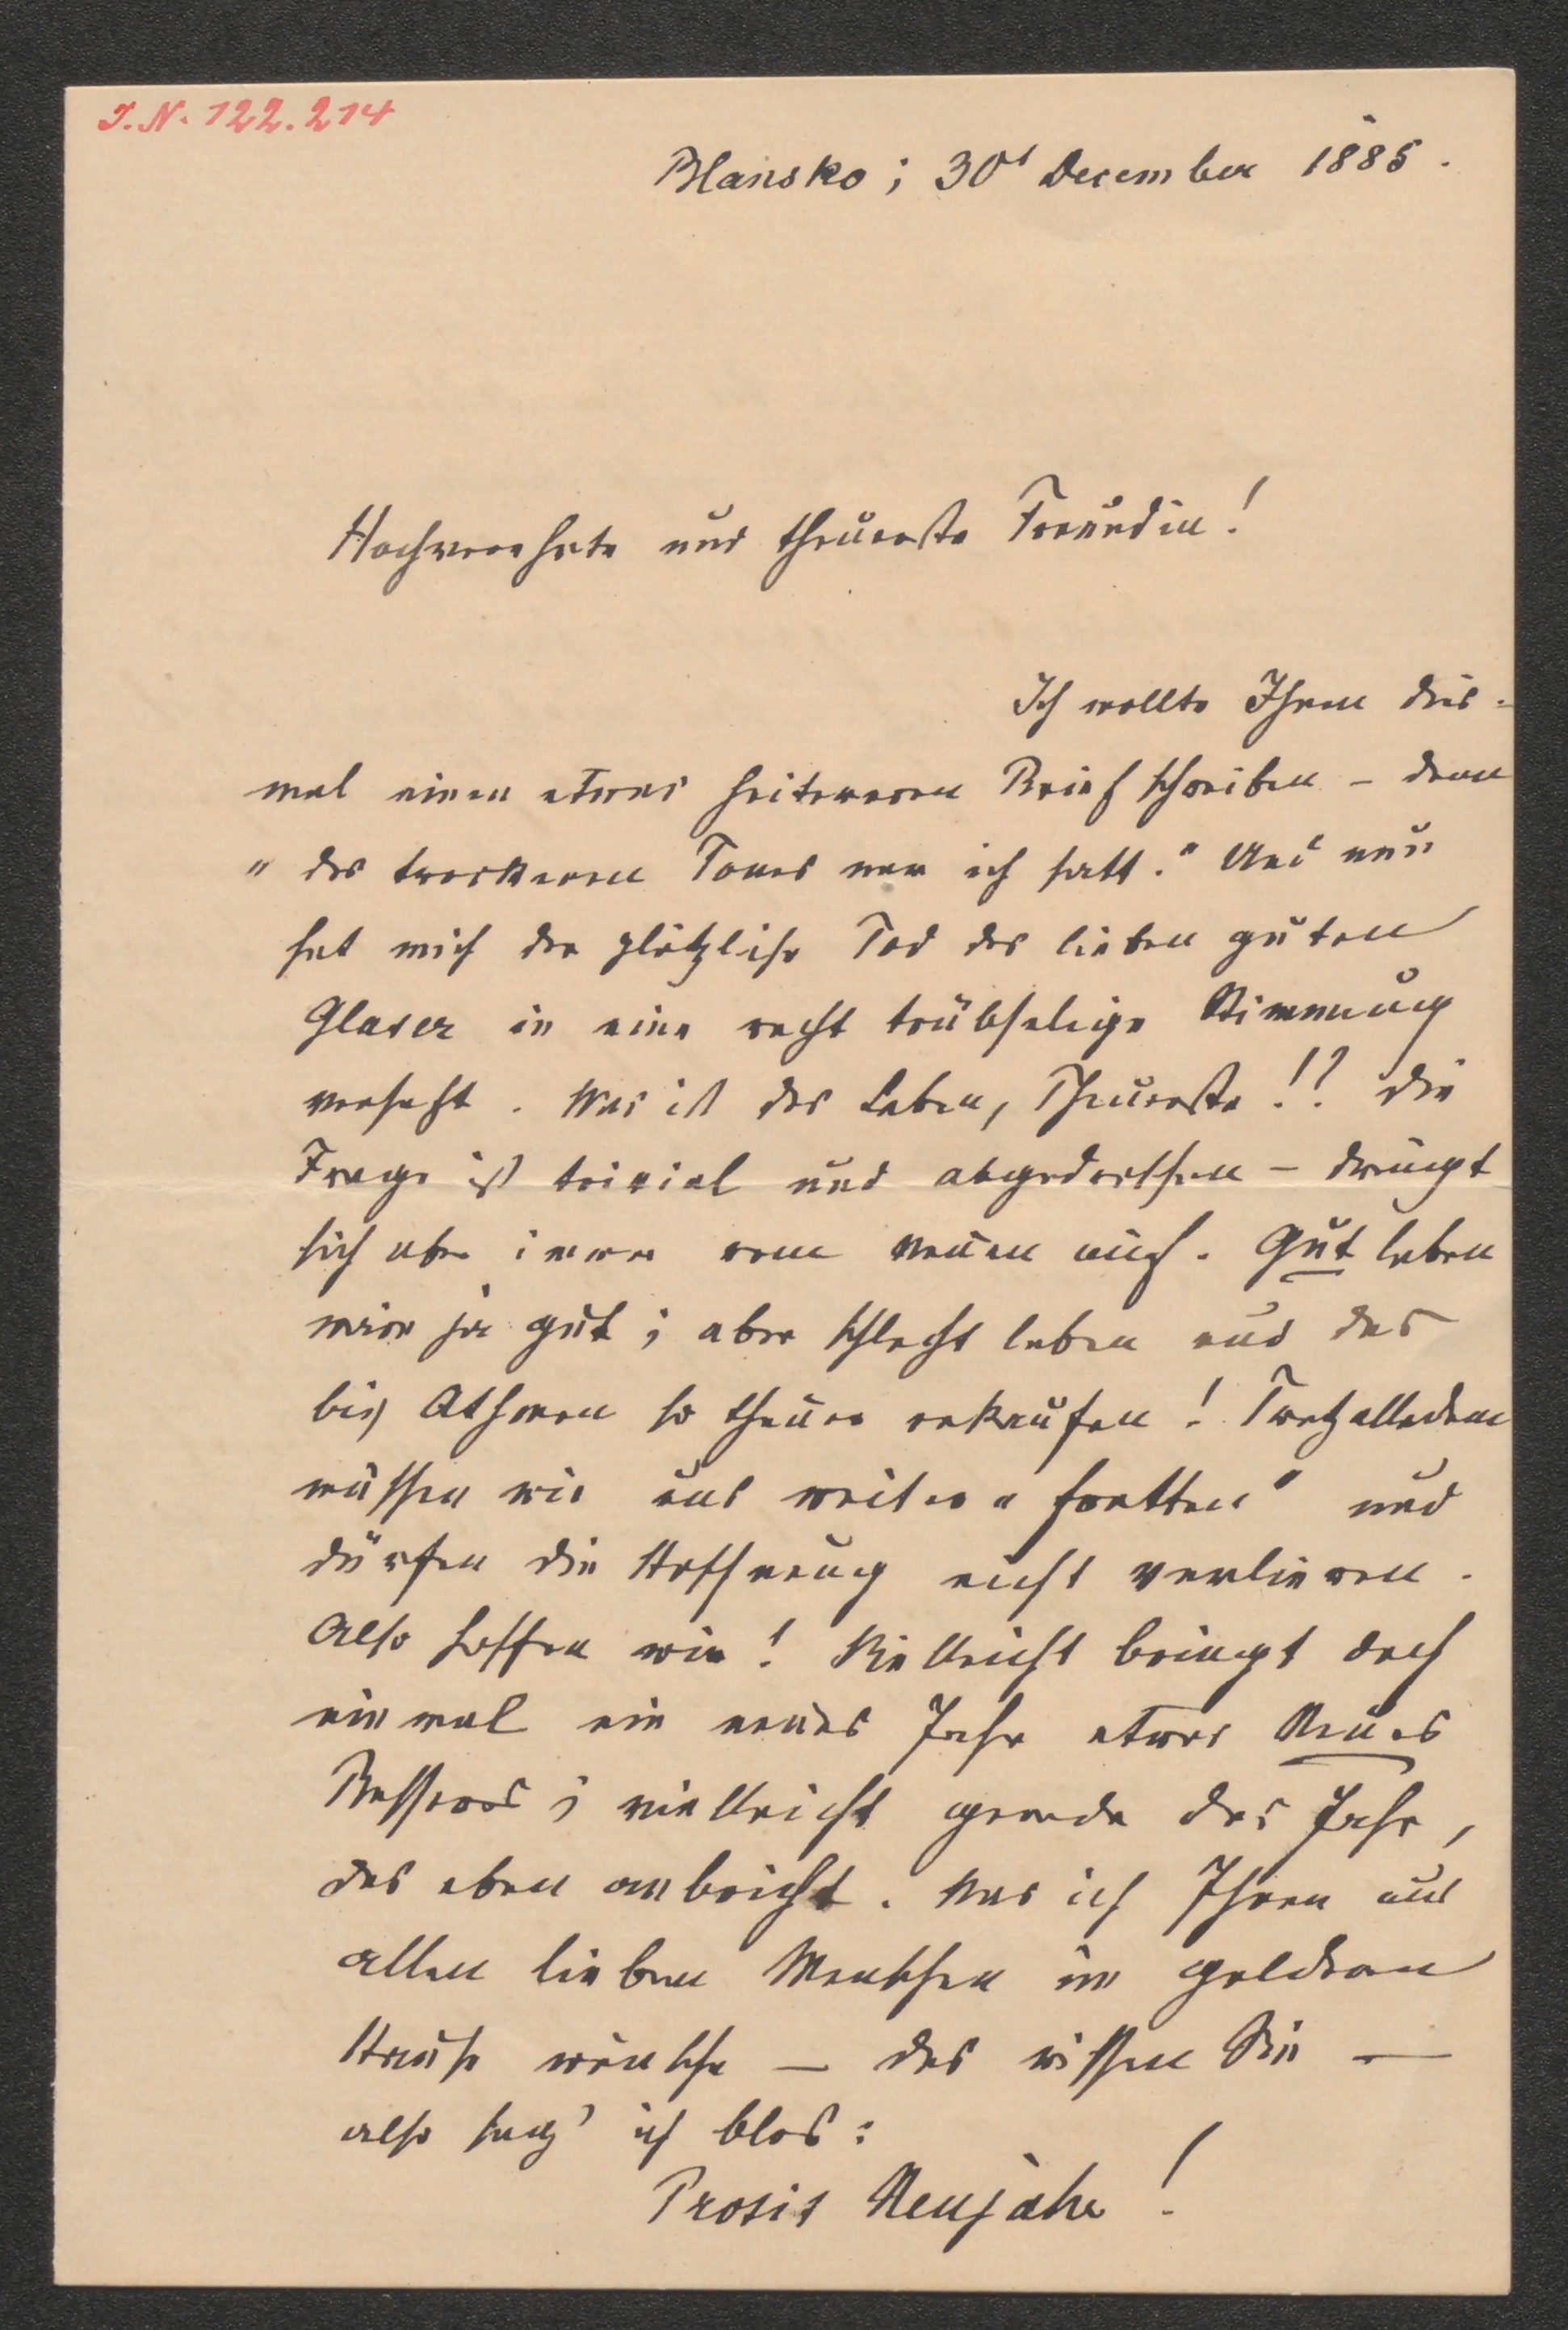 I.N. 122.214
Blansko; 30t December 1885.
Hochverehrte und theuerste Freundin!
Ich wollte Ihnen dies-
mal einen etwas heitereren Brief schreiben – denn
"des trockenen Tones war ich satt." Und nun
hat mich der plötzliche Tod des lieben guten
Glaser in eine recht trübselige Stimmung
versetzt. Was ist das Leben, Theuerste!? Die
Frage ist trivial und abgedroschen – drängt
sich aber immer vom neuen auf. Gut leben
wäre ja gut; aber schlecht leben und das
bis Athmen so theuer erkaufen! Trotzalledem
müssen wir uns weiter "fretten" und
dürfen die Hoffnung nicht verlieren.
Also hoffen wir! Vielleicht bringt doch
einmal ein neues Jahr etwas Neues
Besseres; vielleicht gerade das Jahr,
das eben anbricht. Was ich Ihnen und
allen lieben Menschen im goldenen
Hause wünsche – das wissen Sie –
also sag' ich blos:
Prosit Neujahr!